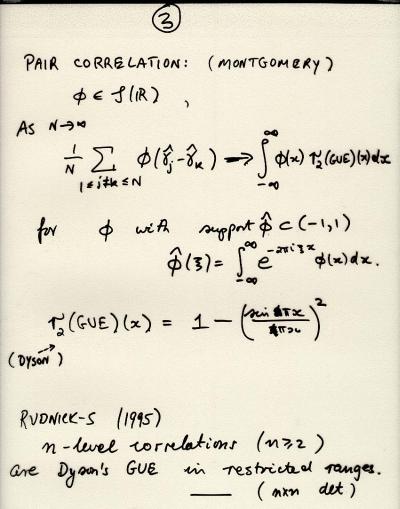 ③
PAIR CORRELATION: (MONTGOMERY)
φ ∈ S(ℝ) ,
AS N→∞
1/N ∑ φ(γ̂_j - γ̂_k) → ∫_{-∞}^{∞} φ(x) r_2(GUE)(x) dx
1≤j≠k≤N
for φ with support φ̂ ⊂ (-1,1)
φ̂(ξ) = ∫_{-∞}^{∞} e^{-2πiξx} φ(x) dx.
r_2(GUE)(x) = 1 - (sin πx / πx)^2
(DYSON)
RUDNICK-S (1995)
n-level correlations (n≥2)
are Dyson's GUE in restricted ranges.
— (n×n det)